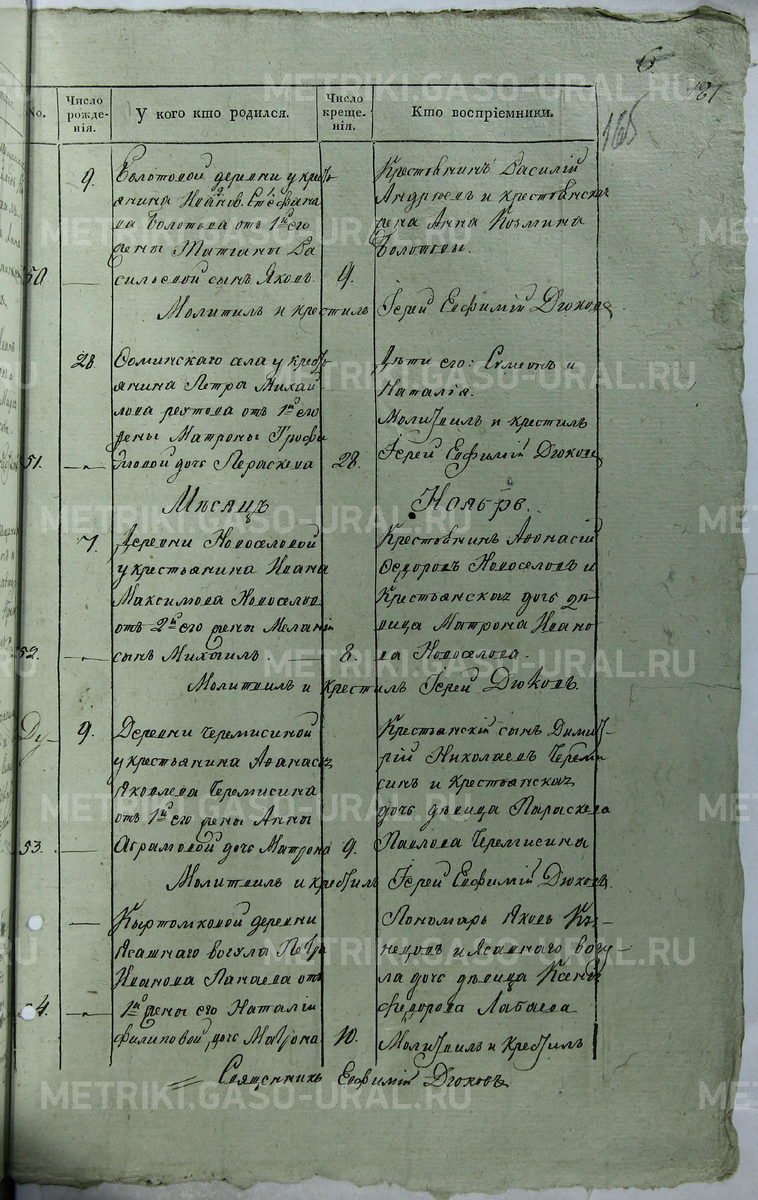 6
181
165
No.
Число рожденія.
У кого кто родился.
Число крещенія.
Кто воспріемники.
9. Болотовой деревни у кресть
янина Иванов. Стефана
ва Болотова отъ 1й его
жены Татіаны Ва
50 — сильевой сынъ Яковъ. 9.
Крестьянинъ Василій
Андреевъ и крестьянская
жена Анна Козмина
Болотовы.
Молитвилъ и крестилъ Іерей Евфимій Дюковъ
28 села у кресть
янина Петра Михай
лова отъ 1й его
жены Матроны Трофи
51. — мовой дочь Параскева 28.
Дѣти его: Симеонъ и
Наталія.
Молитвилъ и крестилъ
Іерей Евфимій Дюковъ
Мѣсяцъ Ноябрь.
7. Деревни Новоселовой
у крестьянина Ивана
Максимова Новоселова
отъ 2й его жены Меланіи
52. — сынъ Михаилъ. — 8.
Крестьянинъ Афонасій
Ѳедоровъ Новоселовъ и
Крестьянская дочь дѣ
вица Матрона Ивано
ва Новоселова.
Молитвилъ и крестилъ Іерей Дюковъ.
9. Деревни Черемисиной
у крестьянина Афанасья
Яковлева Черемисина
отъ 1й его жены Анны
53. — Аврамовой дочь Матрона 9.
Крестьянскій сынъ Дими
трій Николаевъ Череми
синъ и Крестьянская
дочь дѣвица Параскева
Павлова Черемисина
Молитвилъ и крестилъ Іерей Евфимій Дюковъ.
— Кыртомковой деревни
Ясашнаго вогула Петра
Иванова отъ
1й жены его Наталіи
54. — Филиповой дочь Матрона 10.
Пономарь Яковъ Куз
нецовъ и Ясашнаго вогу
ла дочь дѣвица Ксенія
Федорова Лабаева
Молитвилъ и Крестилъ
Священникъ Евфимій Дюковъ
METRIKI.GASO-URAL.RU